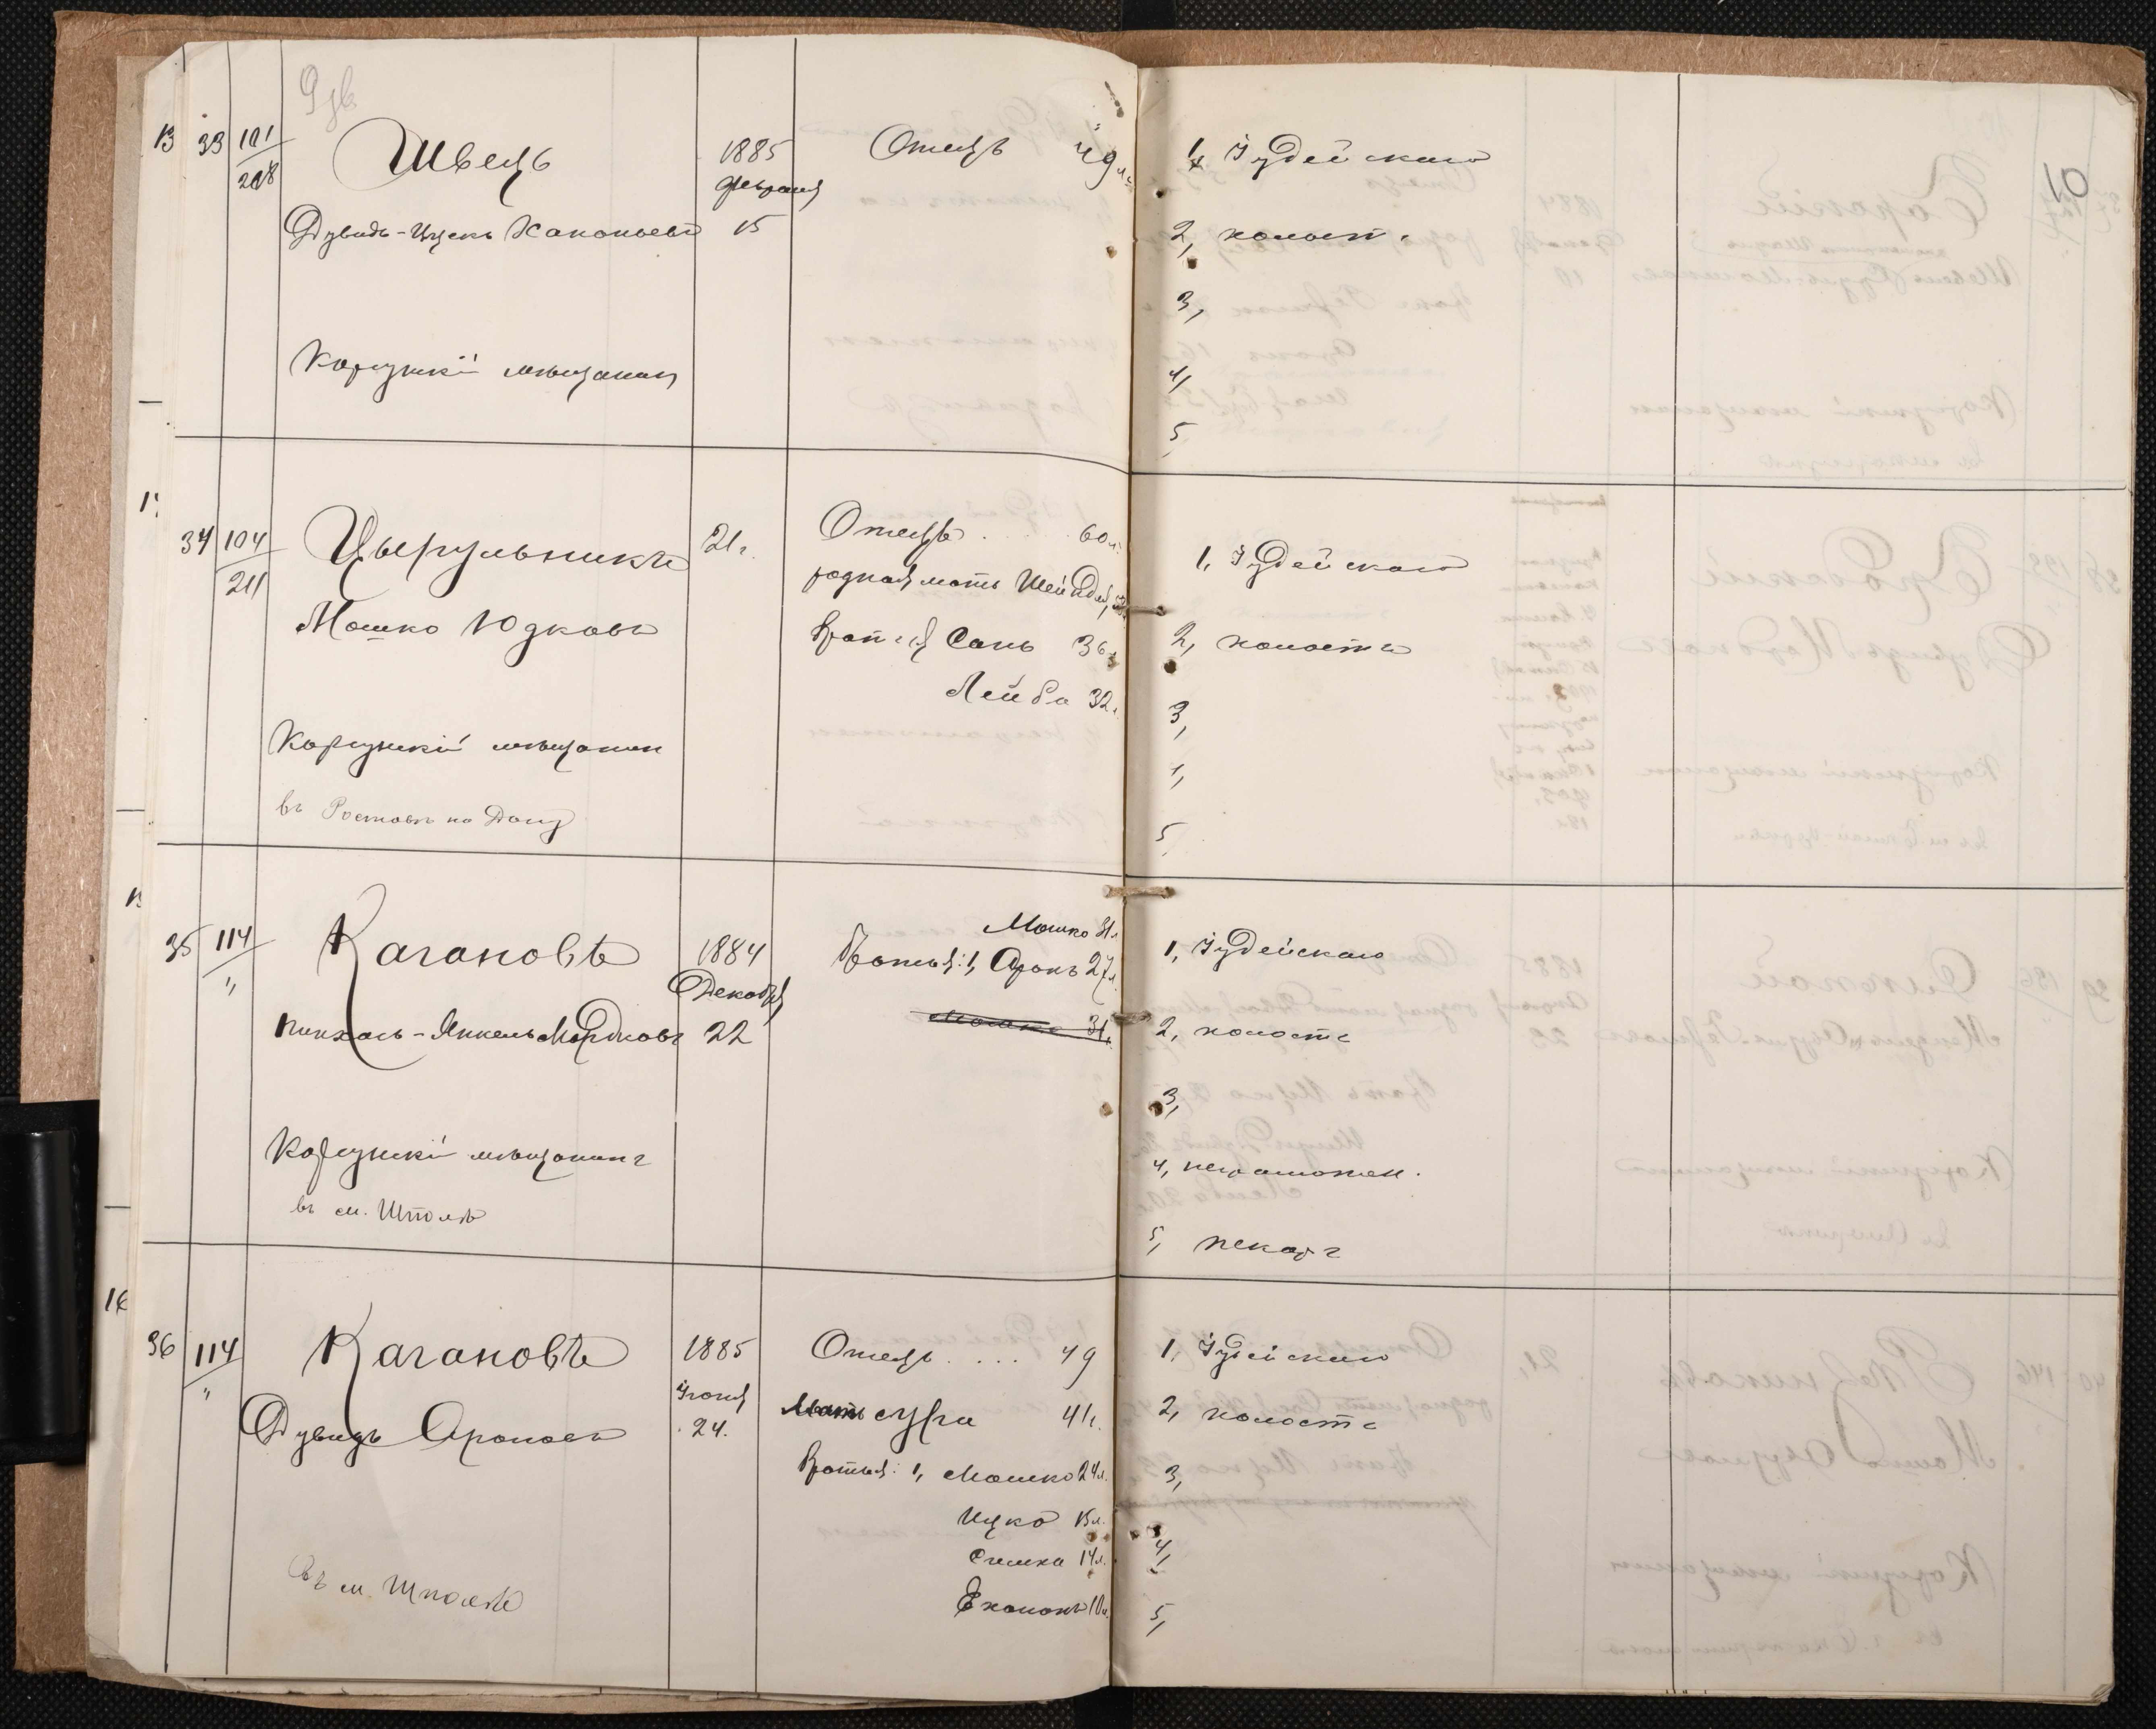 10
13 33 101/208 Швець 1885 Отець 49 л. 1, Іудейскаго
февраля
Дувидъ-Ицекъ Хаконьевъ 15 2, холостъ
3,
Корсунскій мѣщанинъ 4,
5,
34 104/211 Цырульникъ 21 г. Отецъ . . . 60 л. 1, Іудейскаго
родная мать
Мошко Юдковъ братья Сань 36 2, холостъ
Лейба 32 3,
Корсунскій мѣщанин 4,
въ Ростовѣ на Дону 5,
35 114/" Кагановъ 1884 Мошко 31 л. 1, Іудейскаго
Декабря братья: 1, Аронъ 27 л.
Пинхась-Янкель Мордковъ 22 Мошко 31 2, холостъ
3,
Корсунскій мѣщанинъ 4, неграмотен.
въ м. Шполѣ 5, пекарь
16
36 114/" Кагановъ 1885 Отецъ . . . . 49 1, Іудейскаго
Іюня
Дувидъ Ароновъ 24. Мать сура 41 2, холостъ
братья: 1, Мошко 24 л. 3,
Ицко 15 л.
Симха 14 л. 4,
Въ м. Шполѣ 10 л. 5,